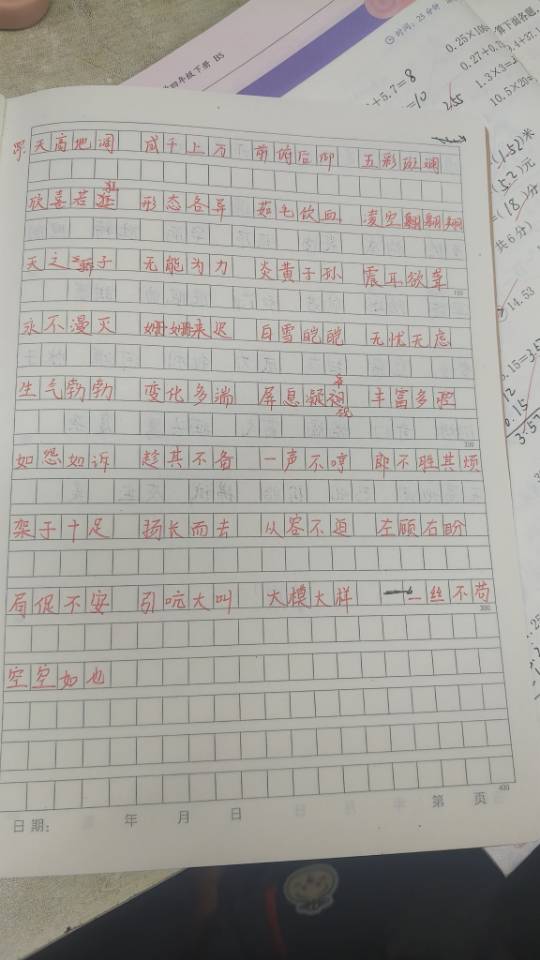 四年级下册 BS
时间：25分钟
0.25×10
0.27+0.
1.3×3=
10.5×20
+5.7=8
=10
255
(1.52)米
(5.2)元
=(18)
共6分)
14.53
.15=3.5
12
0.15
3.5
天高地阔 成千上万 前俯后仰 五彩斑斓
欣喜若狂 形态各异 茹毛饮血 凌空翱翔
天之骄子 无能为力 炎黄子孙 震耳欲聋
永不漫灭 姗姗来迟 白雪皑皑 无忧无虑
生气勃勃 变化多端 屏息凝视 丰富多
如怨如诉 趁其不备 一声不哼 即不胜其烦
架子十足 扬长而去 从容不迫 左顾右盼
局促不安 引吭大叫 大模大样 一丝不苟
300
空空如也
400
日期： 年 月 日 第 页